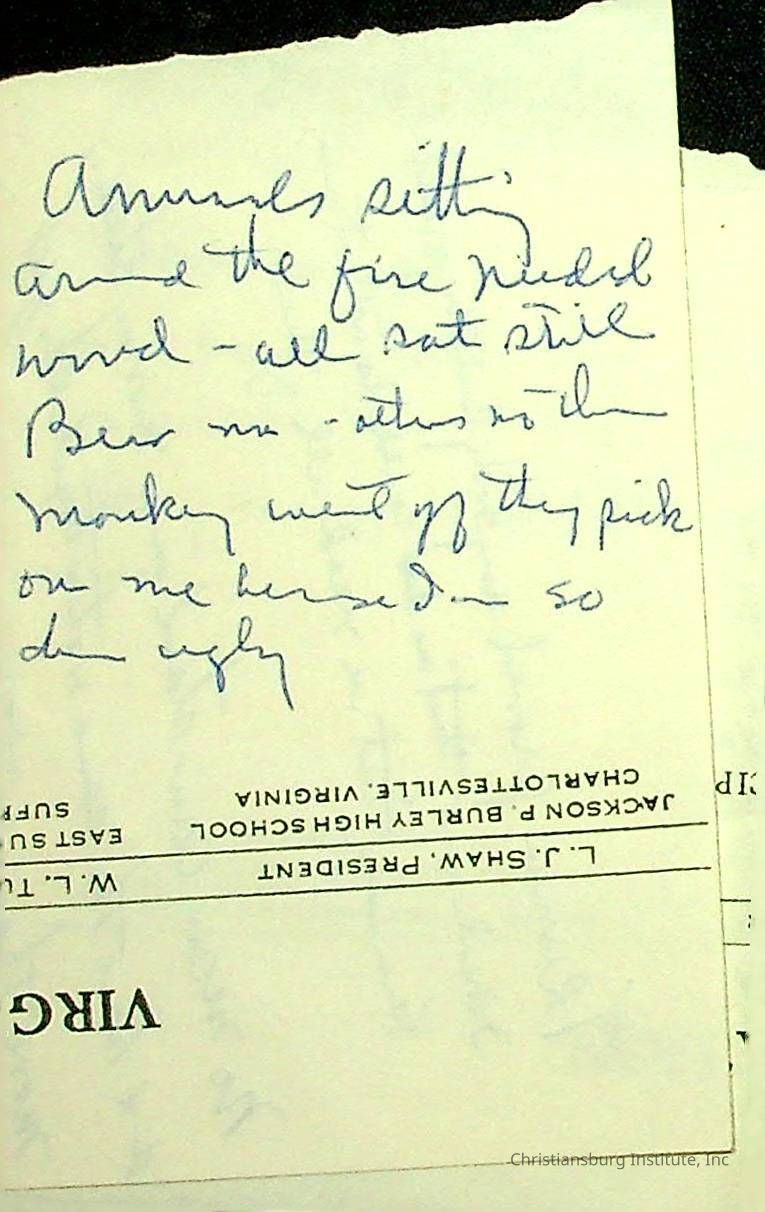 Animals sitting
around the fire needed
wood - all sat still
Bear no - others no then
Monkey went off they pick
on me because I'm so
damn ugly
CHARLOTTESVILLE, VIRGINIA
JACKSON P. BURLEY HIGH SCHOOL
EAST SU
SUFF
L. J. SHAW, PRESIDENT
W. L. TU
VIRG
CIP
Christiansburg Institute, Inc